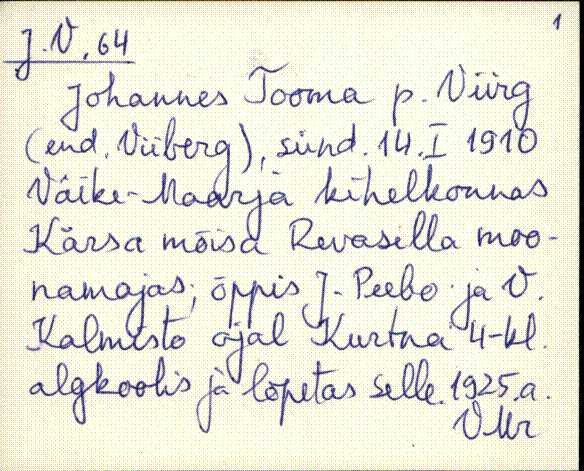 1
J.V, 64
Johannes Tooma p. Viirg
(end. Viiberg), sünd. 14. I 1910
Väike-Maarja kihelkonnas
Kärsa mõisa Revasilla moo-
namajas; õppis J. Peebo ja V.
Kalmisto ajal Kurtna 4-kl.
algkoolis ja lõpetas selle 1925.a.